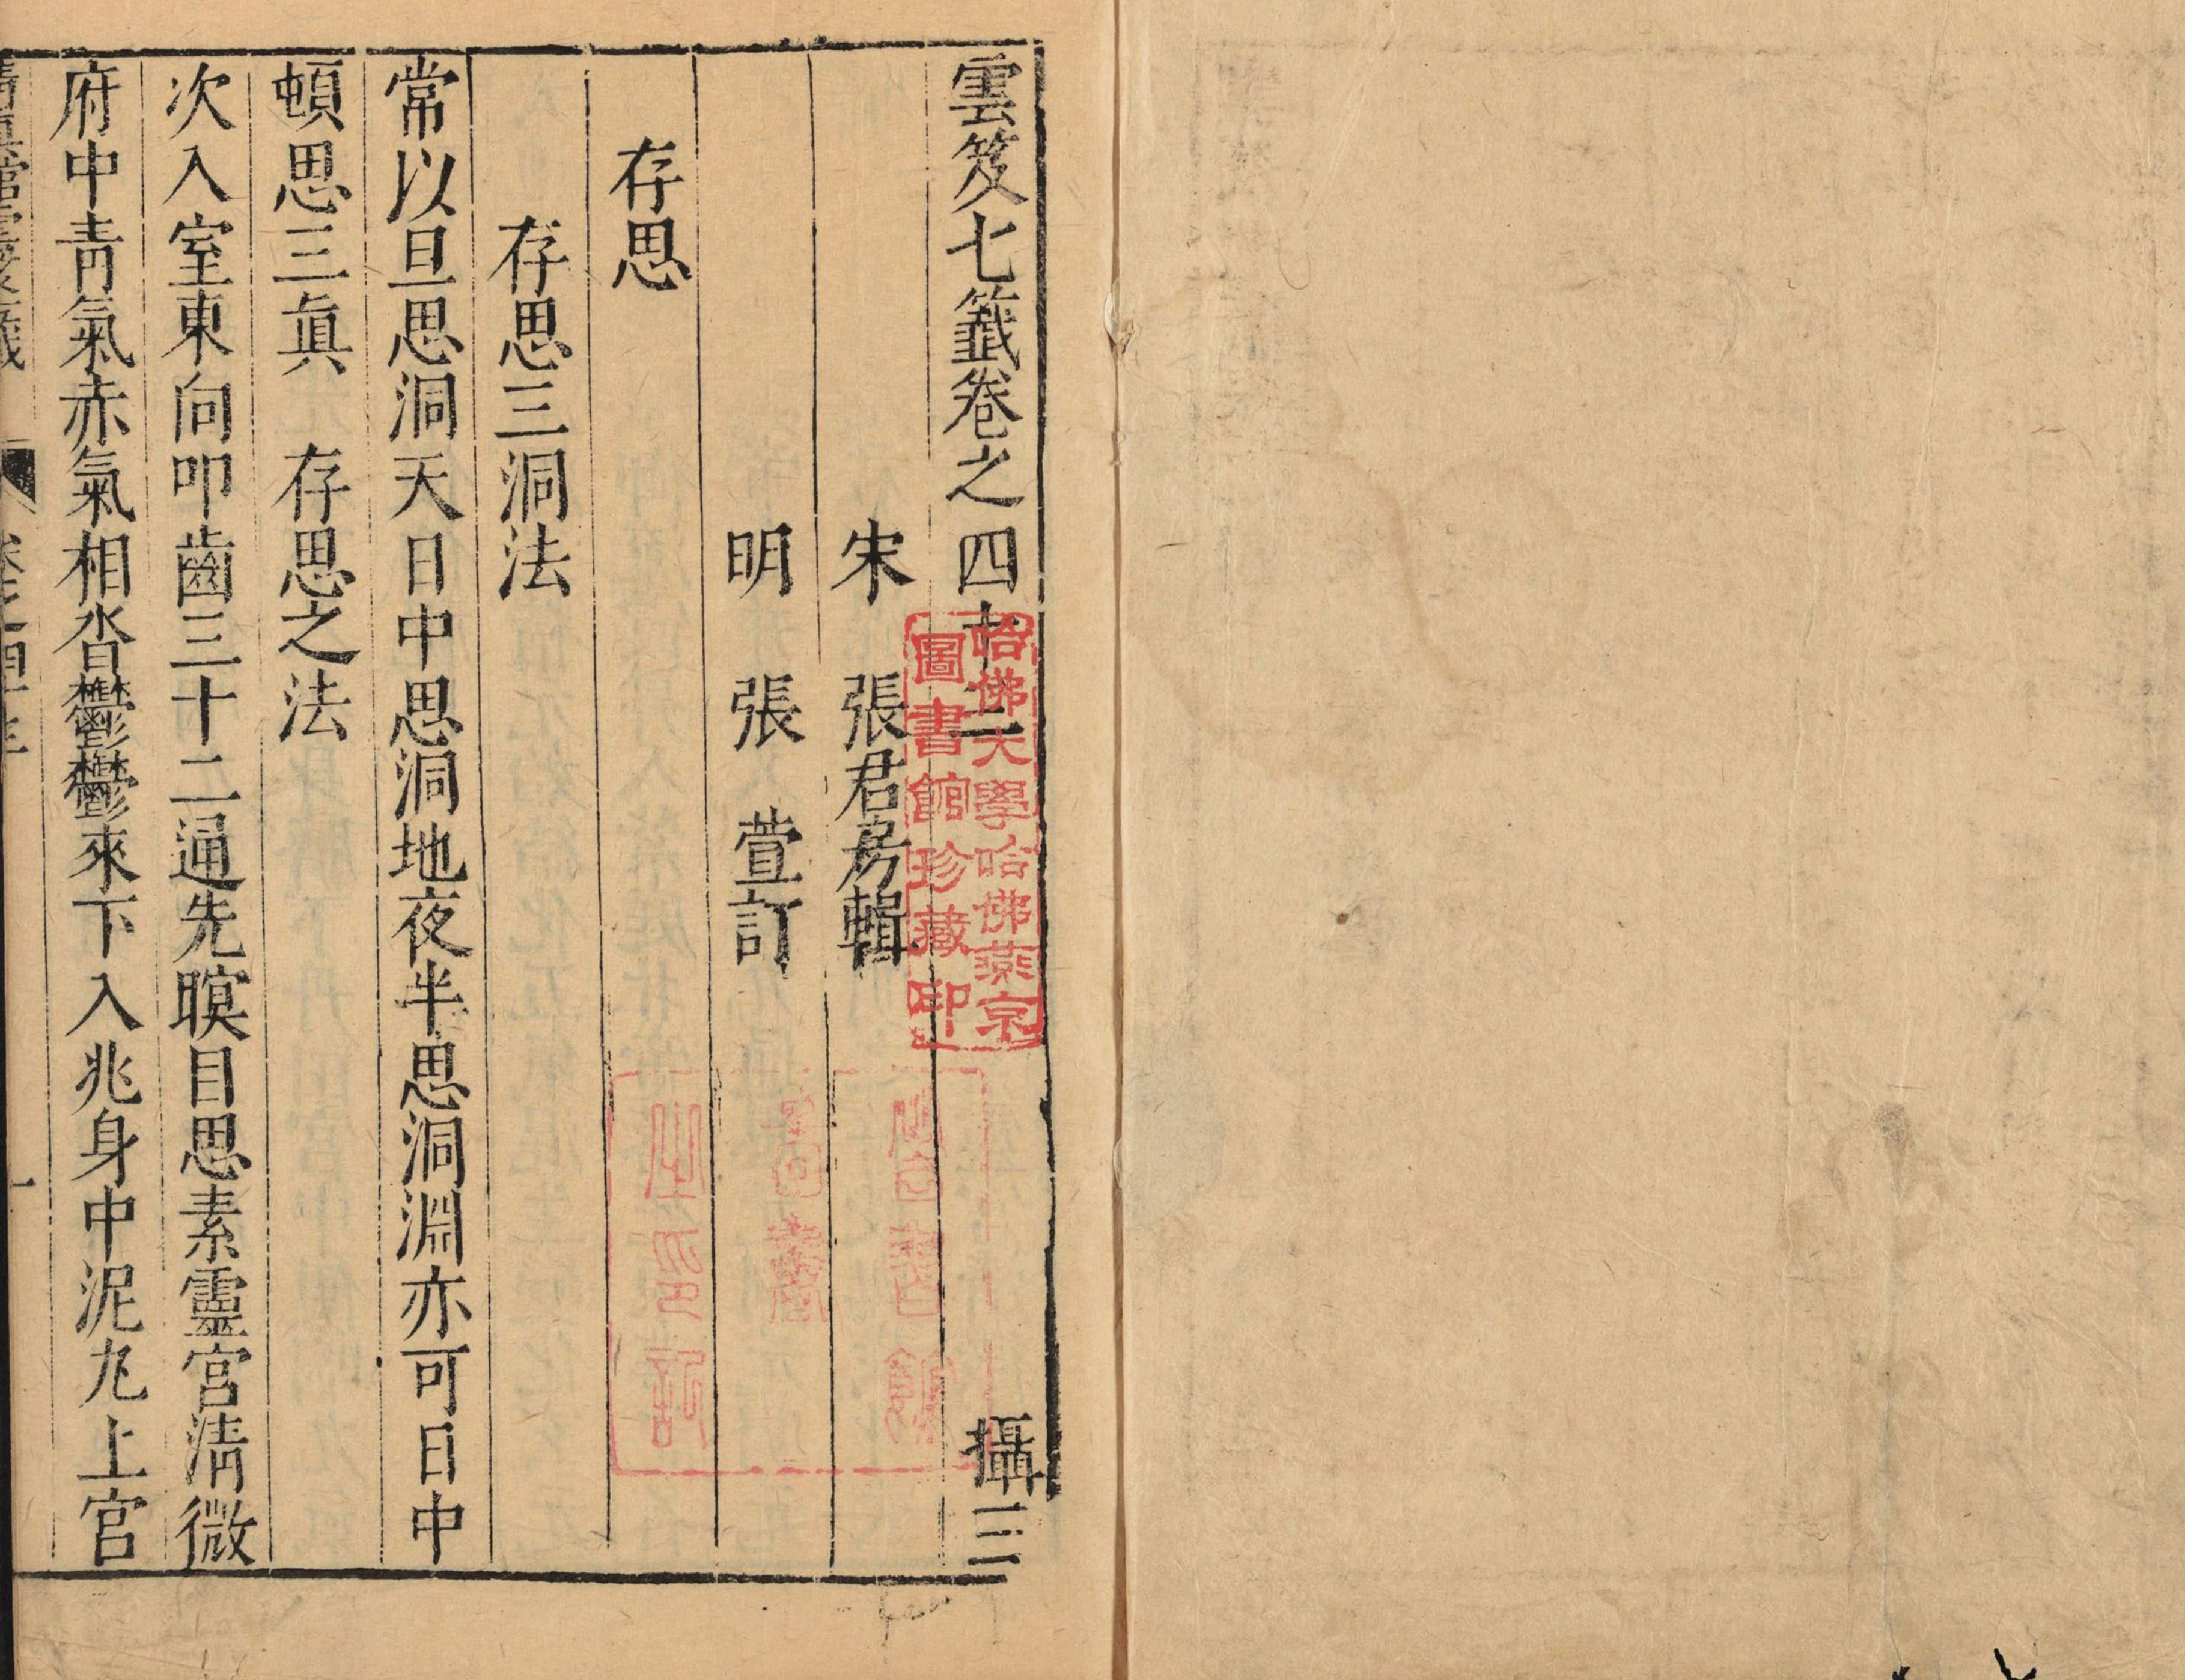 雲笈七籤卷之四十三 攝三
宋 張君房輯
明 張 萱訂
存思
存思三洞法
常以旦思洞天日中思洞地夜半思洞淵亦可日中
頓思三眞 存思之法
次入室東向叩齒三十二通先瞑目思素靈宮清微
府中靑氣赤氣相沓鬱鬱來下入兆身中泥丸上宮
清眞館雲笈籤 卷之四十三 一
哈佛大學哈佛燕京
圖書館珍藏印